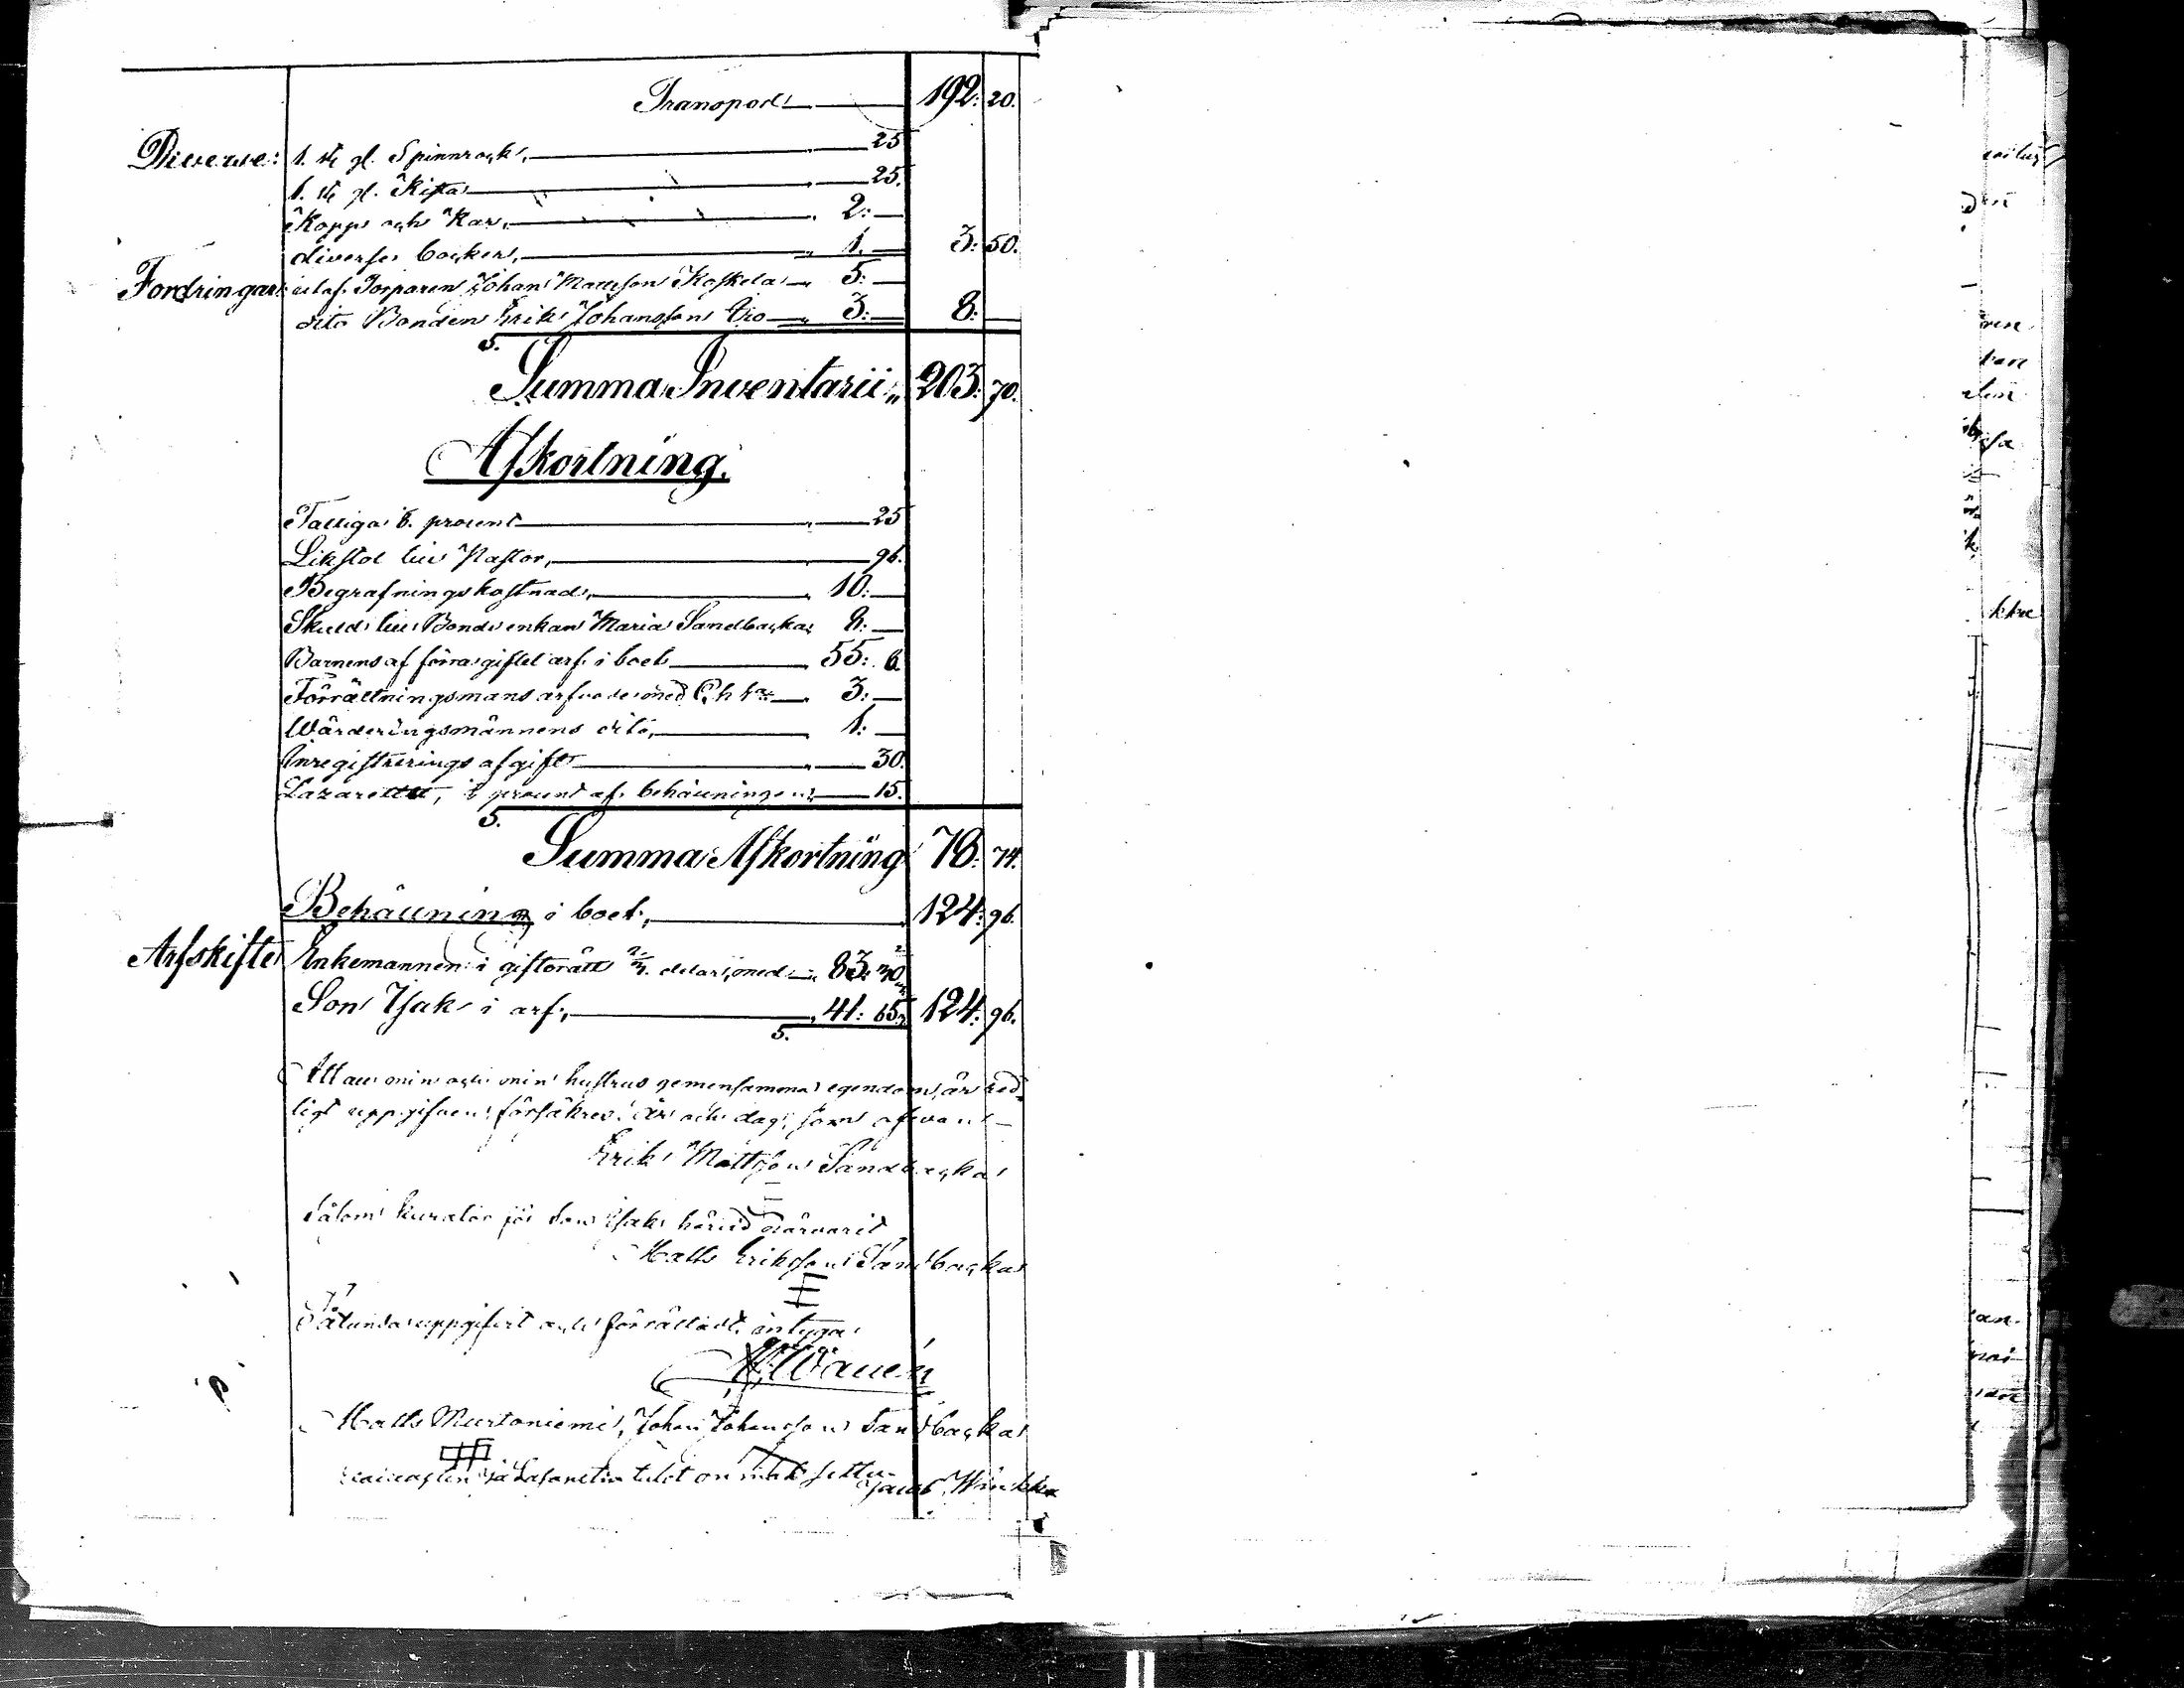 Transport 192: 20.
Diverse: 1. st. gl. Spinnrock, 25
1. st. gl. Kista 25.
Kopp och Kar, 2: —
diverse bocker, 1. — 3: 50.
Fordringar: utaf Torparen Johan Mattsson Koskela 5: —
dito Bonden Erik Johansson 3: — 8: —
S.
Summa Inventarii „ 203: 70.
Afkortning.
Fattiga procent 25
Likstol till Pastor, 96.
Begrafningskostnad, 10: —
Skuld till Bonde enkan Maria Sandbacka 8: —
Barnens af förra giftet arf i boet 55: 6.
Förrättningsmans arfvode med 3: —
Wärderingsmännens dito, 1: —
Inregistrerings afgift 30.
Lazarettet, procent af behållningen 15.
S.
Summa Afkortning 78: 74.
Behållning i boet, 124: 96.
Arfskifte Enkemannen i giftorätt 2/3 delar, med 83: 30
Son Isak i arf, 41: 65 124: 96.
S.
Att all min och min hustrus gemensamma egendom, är red-
ligt uppgifven, försäkrar; år och dag, som ofvan
Erik Mattsson Sandbacka
Såsom kurator för son Isak härvid närvarit
Matts Eriksson Sandbacka
Sålunda uppgifvit och förrättadt, intyga
Matts Murtoniemi, Johan Johansson Sandbacka
ja Lasaretin on
Jacob